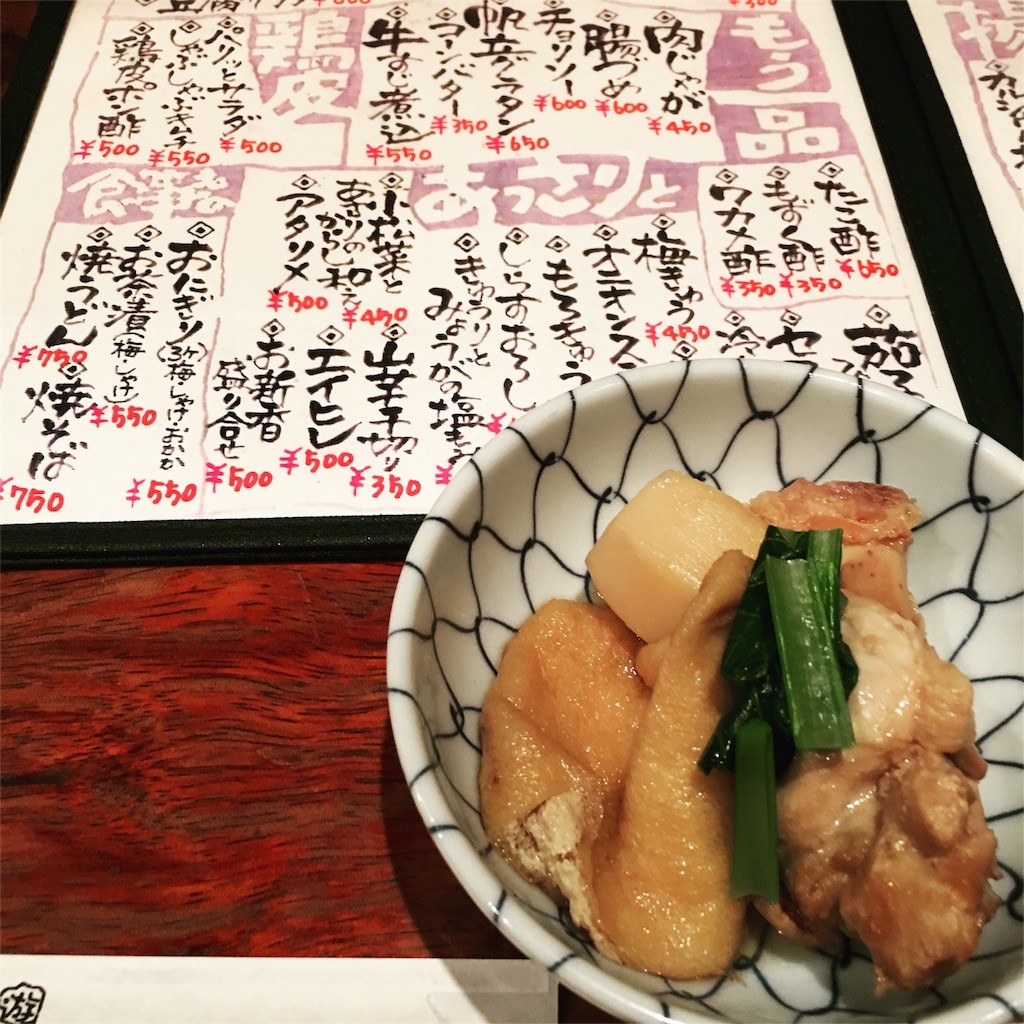 もう一品
肉じゃが
¥450
腸づめ
¥600
チョリソー
¥600
帆立グラタン
¥650
コーンバター
¥350
牛すじ煮込
¥550
鶏皮
パリッとサラダ
¥500
しゃぶしゃぶキムチ
¥550
鶏皮ポン酢
¥500
たこ酢
¥650
もずく酢
¥350
ワカメ酢
¥350
あっさりと
梅きゅう
¥450
オニオンス
もろきゅう
しらすおろし
きゅうりと
みょうがの塩もみ
小松菜と
あさりの
からし和え
¥450
アタリメ
¥500
山芋千切り
¥350
エイヒレ
¥500
お新香
盛り合せ
¥500
おにぎり(3ヶ梅・しゃけ・おかか
¥550
お茶漬(梅・しゃけ)
¥550
焼うどん
¥750
焼そば
¥750
遊